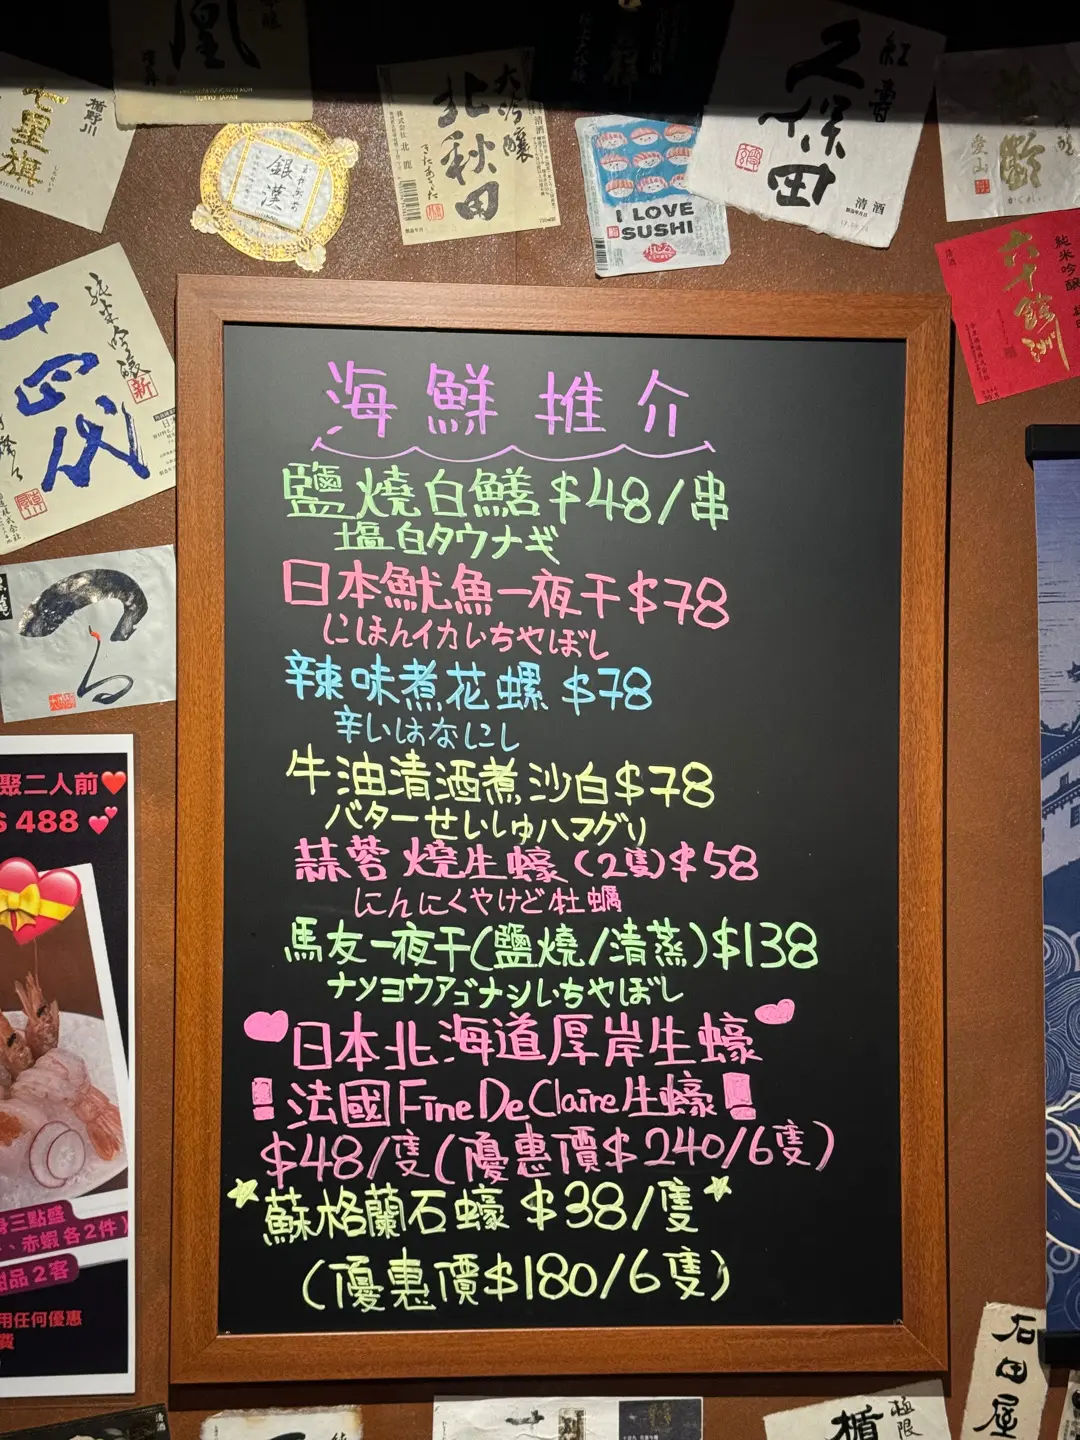 凰
楯野川
七星旗
銀漢
大吟醸
北秋田
清酒
株式会社 北鹿
きたあきた
I LOVE
SUSHI
清酒
紅壽
久保田
清酒
愛山
純米吟醸
六十餘洲
清酒
純米吟醸
新
十四代
海鮮推介
鹽燒白鱔$48/串
塩白タウナギ
日本魷魚一夜干$78
にほんイカいちやぼし
辣味煮花螺 $78
辛いはなにし
牛油清酒煮沙白$78
バターせいしゅハマグリ
蒜蓉燒生蠔(2隻)$58
にんにくやけど牡蠣
馬友一夜干(鹽燒/清蒸)$138
ナンヨウアゴナシいちやぼし
日本北海道厚岸生蠔
法國Fine De Claire生蠔
$48/隻(優惠價$240/6隻)
蘇格蘭石蠔 $38/隻
(優惠價$180/6隻)
聚二人前
$ 488
三點盛
、赤蝦 各2件)
甜品2客
用任何優惠
費
石田屋
極限
楯
清酒